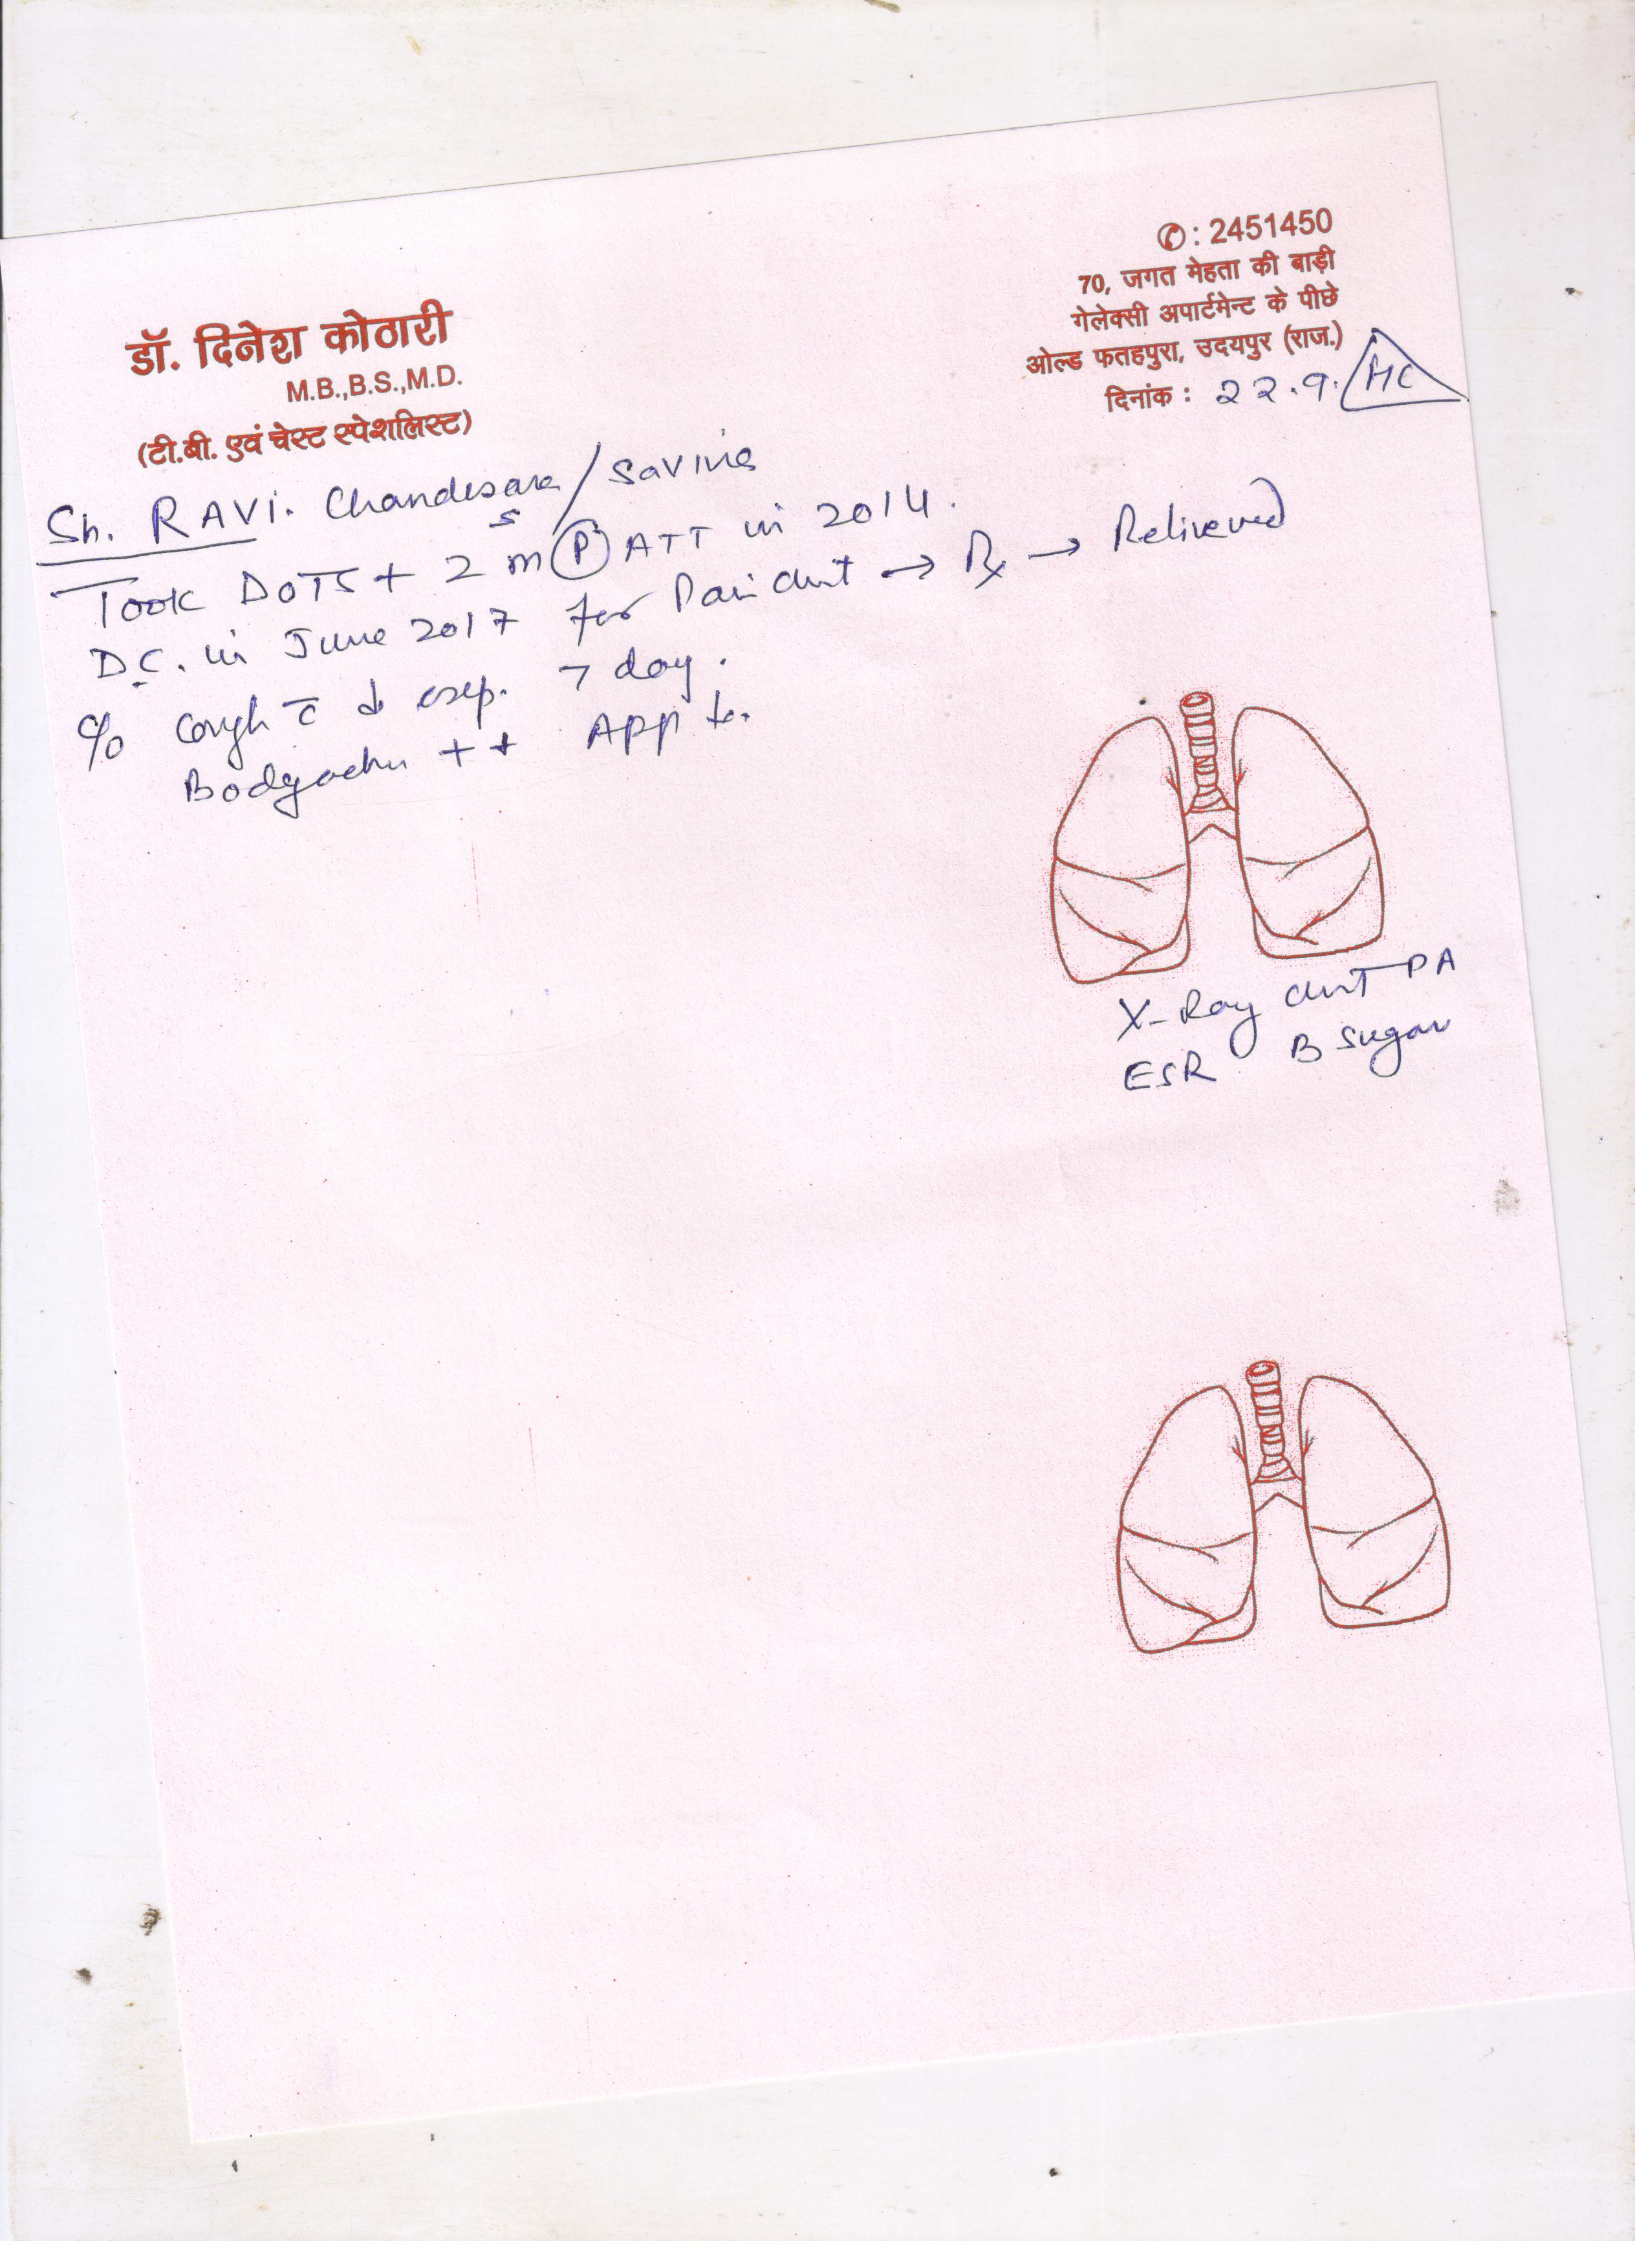 ✆: 2451450
70, जगत मेहता की बाड़ी
गेलेक्सी अपार्टमेन्ट के पीछे
ओल्ड फतहपुरा, उदयपुर (राज.)
दिनांक : 22.9. HC
डॉ. दिनेश कोठारी
M.B.,B.S.,M.D.
(टी.बी. एवं चेस्ट स्पेशलिस्ट)
Sh. RAVi. / Savina
Took DOTS + 2 m P ATT in 2014.
D.C. in June 2017 for Pain chest → Rx → Relieved
c/o Cough c̄ exp. 7 day.
Bodyache ++ App
X-Ray chest PA
ESR B sugar